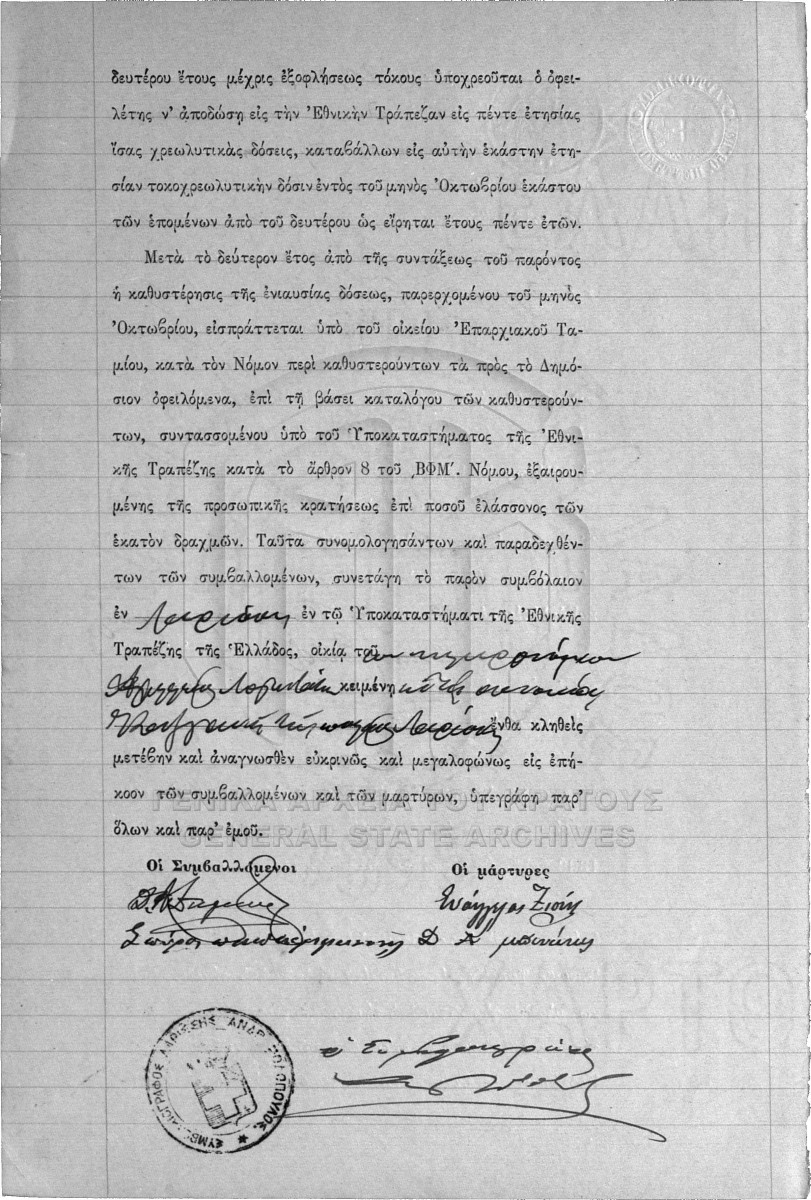 δευτέρου ἔτους μέχρις ἐξοφλήσεως τόκους ὑποχρεοῦται ὁ ὀφει-
λέτης ν' ἀποδώσῃ εἰς τὴν Ἐθνικὴν Τράπεζαν εἰς πέντε ἐτησίας
ἴσας χρεωλυτικὰς δόσεις, καταβάλλων εἰς αὐτὴν ἑκάστην ἐτη-
σίαν τοκοχρεωλυτικὴν δόσιν ἐντὸς τοῦ μηνὸς Ὀκτωβρίου ἑκάστου
τῶν ἑπομένων ἀπὸ τοῦ δευτέρου ὡς εἴρηται ἔτους πέντε ἐτῶν.
Μετὰ τὸ δεύτερον ἔτος ἀπὸ τῆς συντάξεως τοῦ παρόντος
ἡ καθυστέρησις τῆς ἐνιαυσίας δόσεως, παρερχομένου τοῦ μηνὸς
Ὀκτωβρίου, εἰσπράττεται ὑπὸ τοῦ οἰκείου Ἐπαρχιακοῦ Τα-
μίου, κατὰ τὸν Νόμον περὶ καθυστερούντων τὰ πρὸς τὸ Δημό-
σιον ὀφειλόμενα, ἐπὶ τῇ βάσει καταλόγου τῶν καθυστερούν-
των, συντασσομένου ὑπὸ τοῦ Ὑποκαταστήματος τῆς Ἐθνι-
κῆς Τραπέζης κατὰ τὸ ἄρθρον 8 τοῦ ͵ΒΦΜ΄. Νόμου, ἐξαιρου-
μένης τῆς προσωπικῆς κρατήσεως ἐπὶ ποσοῦ ἐλάσσονος τῶν
ἑκατὸν δραχμῶν. Ταῦτα συνομολογησάντων καὶ παραδεχθέν-
των τῶν συμβαλλομένων, συνετάγη τὸ παρὸν συμβόλαιον
ἐν Λαρίσῃ ἐν τῷ Ὑποκαταστήματι τῆς Ἐθνικῆς
Τραπέζης τῆς Ἑλλάδος, οἰκίᾳ τοῦ
κειμένῃ συνοικίας
Λαρίσης ἔνθα κληθεὶς
μετέβην καὶ ἀναγνωσθὲν εὐκρινῶς καὶ μεγαλοφώνως εἰς ἐπή-
κοον τῶν συμβαλλομένων καὶ τῶν μαρτύρων, ὑπεγράφη παρ'
ὅλων καὶ παρ' ἐμοῦ.
ΓΕΝΙΚΑ ΑΡΧΕΙΑ ΤΟΥ ΚΡΑΤΟΥΣ
GENERAL STATE ARCHIVES
Οἱ Συμβαλλόμενοι Οἱ μάρτυρες
Σπύρος Δ Α
ὁ Συμβολαιογράφος
ΣΥΜΒΟΛΑΙΟΓΡΑΦΟΣ ΛΑΡΙΣΣΗΣ ΑΝΔΡ.